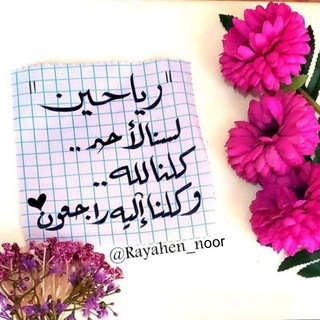 "رياحين"
لسنا لأحد..
كلنا لله..
وكلنا إليه راجعون
@Rayahen_noor